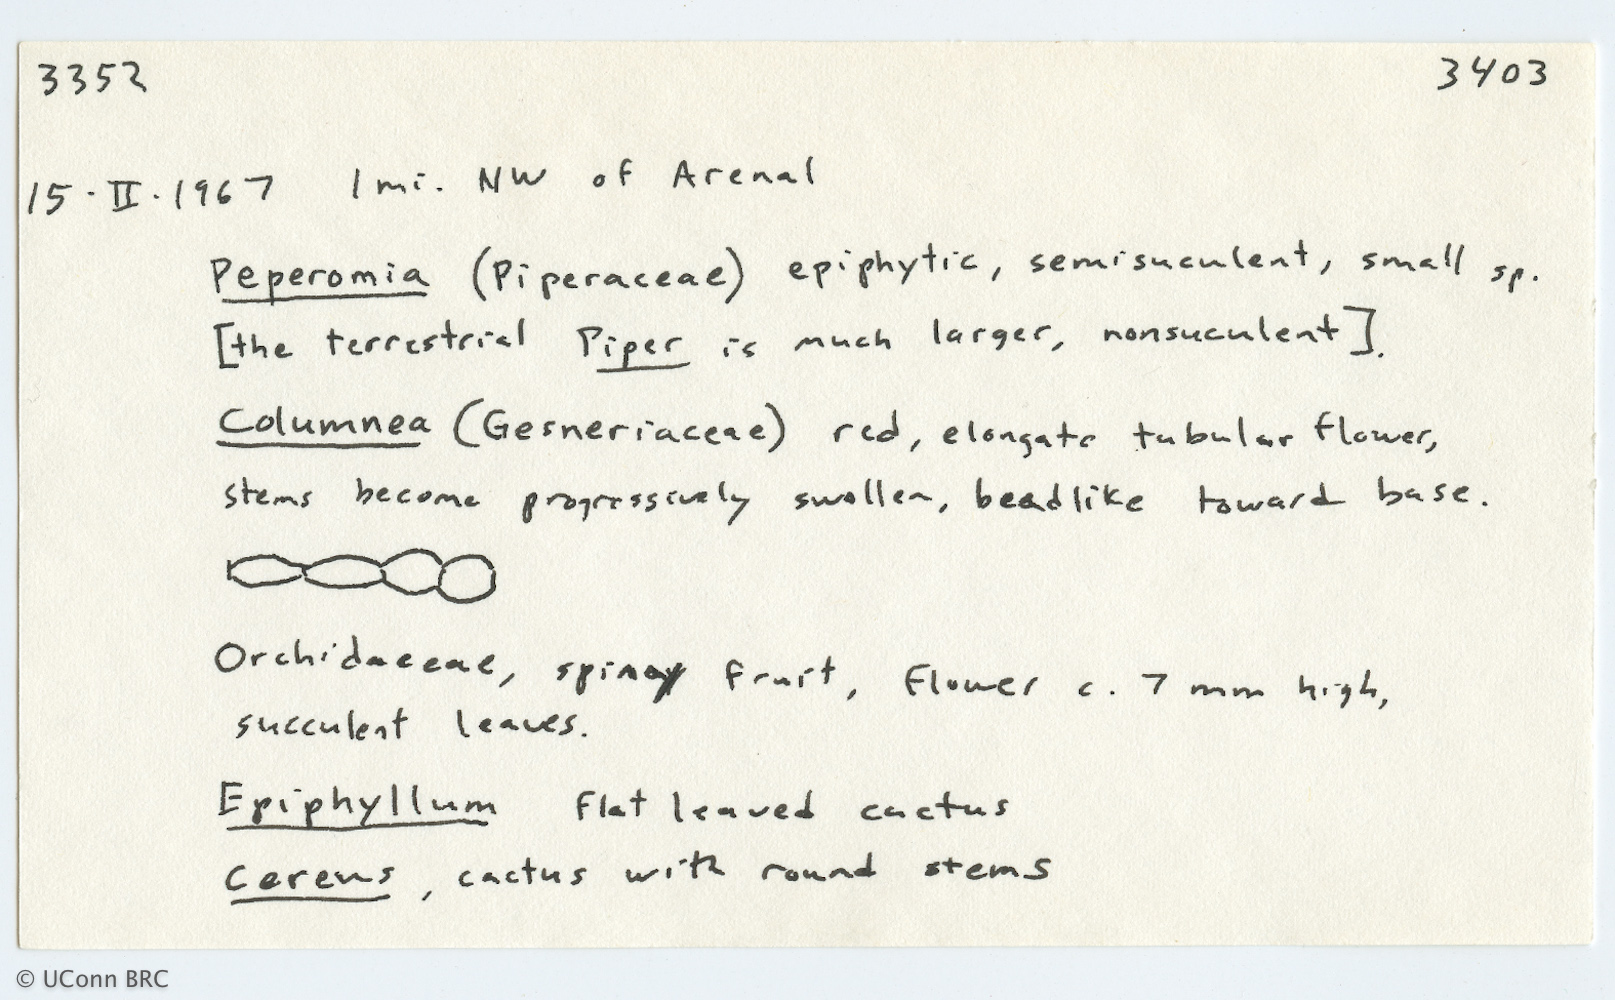 3352 3403
15·II·1967 1 mi. NW of Arenal
Peperomia (Piperaceae) epiphytic, semisuculent, small sp.
[the terrestrial Piper is much larger, nonsuculent].
Columnea (Gesneriaceae) red, elongate tubular flower,
stems become progressively swollen, beadlike toward base.
Orchidaceae, spiny fruit, flower c. 7 mm high,
succulent leaves.
Epiphyllum flat leaved cactus
Cereus, cactus with round stems
© UConn BRC